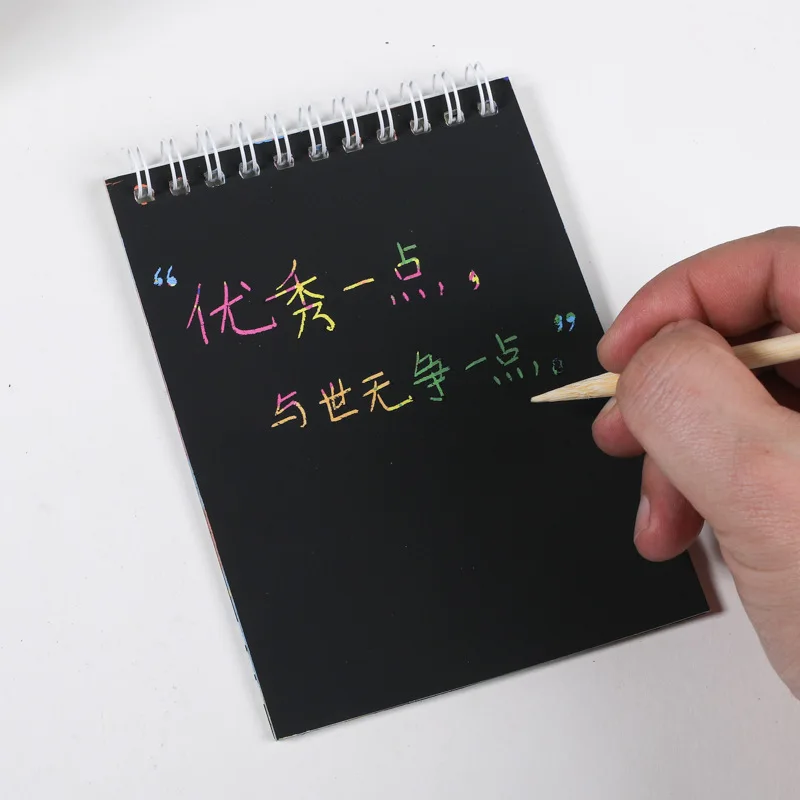 “优秀一点，
与世无争一点。”